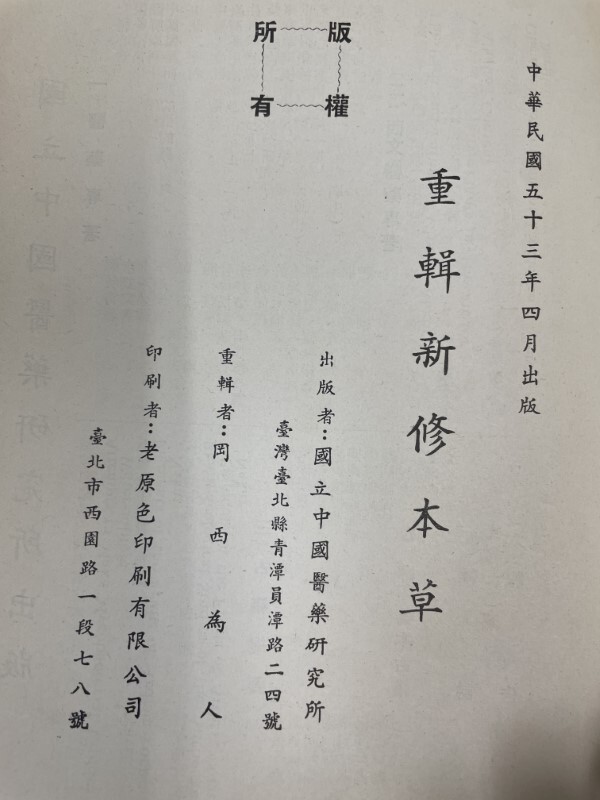 版權所有
中華民國五十三年四月出版
重輯新修本草
出版者：國立中國醫藥研究所
臺灣臺北縣青潭員潭路二四號
重輯者：岡西為人
印刷者：老原色印刷有限公司
臺北市西園路一段七八號
國立中國醫藥研究所出版